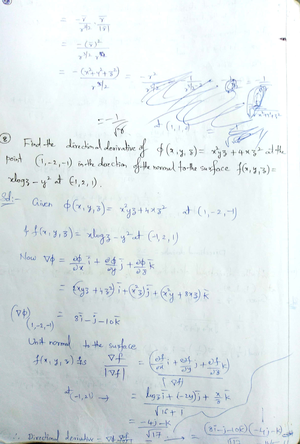 = -r̄/r^3/2 · r̄/|r̄|
= -(r̄)²/r^3/2 · r^1/2
= -(x²+y²+z²)/r^3/2
at (1, 1, 2)
⑧ Find the directional derivative of φ(x,y,z) = x²yz + 4xz² at the
point (1,-2,-1) in the direction of the normal to the surface f(x,y,z) =
xlogz - y² at (-1,2,1).
Sol:- Given φ(x,y,z) = x²yz + 4xz² at (1,-2,-1)
& f(x,y,z) = xlogz - y² at (-1,2,1)
Now ∇φ = ∂φ/∂x i + ∂φ/∂y j + ∂φ/∂z k
= (2xyz + 4z²) i + (x²z) j + (x²y + 8xz) k
(∇φ)(1,-2,-1) = 8i - j - 10k
Unit normal to the surface
f(x,y,z) is ∇f/|∇f| = (∂f/∂x i + ∂f/∂y j + ∂f/∂z k)/|∇f|
at (-1,2,1) → = logz i + (-2y) j + x/z k / √16+1
= -4j - k / √17
∴ Directional derivative = ∇φ · ∇f/|∇f| = (8i - j - 10k)(-4j - k)/√17